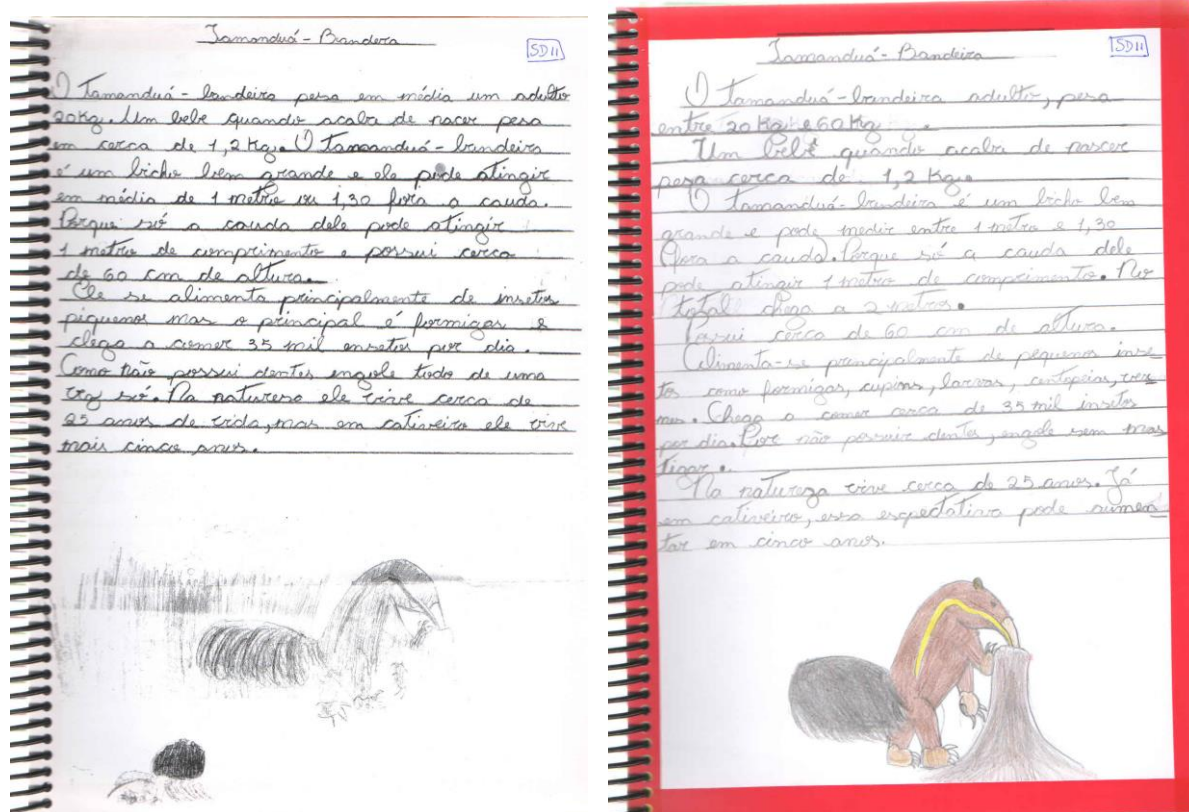 Tamanduá - Bandera
SD11
O Tamanduá - bandeira pesa em média um adulto
20Kg. Um bebe quando acaba de nacer pesa
em cerca de 1,2 Kg. O Tamanduá - bandeira
é um bicho bem grande e ele pode atingir
em média de 1 metro ou 1,30 fora a cauda.
Porque só a cauda dele pode atingir
1 metro de comprimento e possui cerca
de 60 cm de altura.
Ele se alimenta principalmente de insetos
piquenos mas o principal é formigas e
chega a comer 35 mil ensetos por dia.
Como não possui dentes engole tudo de uma
vez só. Na naturesa ele vive cerca de
25 anos de vida, mas em cativeiro ele vive
mais cinco anos.
Tamanduá - Bandeira
SD11
O Tamanduá - bandeira adulto, pesa
entre 20 Kg e 60 Kg.
Um bebê quando acaba de nascer
pesa cerca de 1,2 Kg.
O Tamanduá - bandeira é um bicho bem
grande e pode medir entre 1 metro e 1,30
fora a cauda. Porque só a cauda dele
pode atingir 1 metro de comprimento. No
total chega a 2 metros.
Possui cerca de 60 cm de altura.
Alimenta-se principalmente de pequenos inse-
tos como formigas, cupins, larvas, centopeias, ver-
mes. Chega a comer cerca de 35 mil insetos
por dia. Por não possuir dentes, engole sem mas
tigar.
Na natureza vive cerca de 25 anos. Já
em cativeiro, essa espectativa pode aumen-
tar em cinco anos.